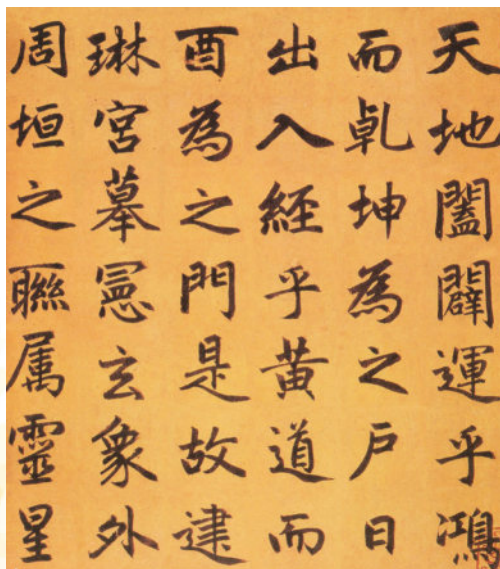 天地闔闢運乎鴻
而乹坤為之戶日
出入經乎黃道而
酉為之門是故建
琳宮摹憲玄象外
周垣之聯属靈星